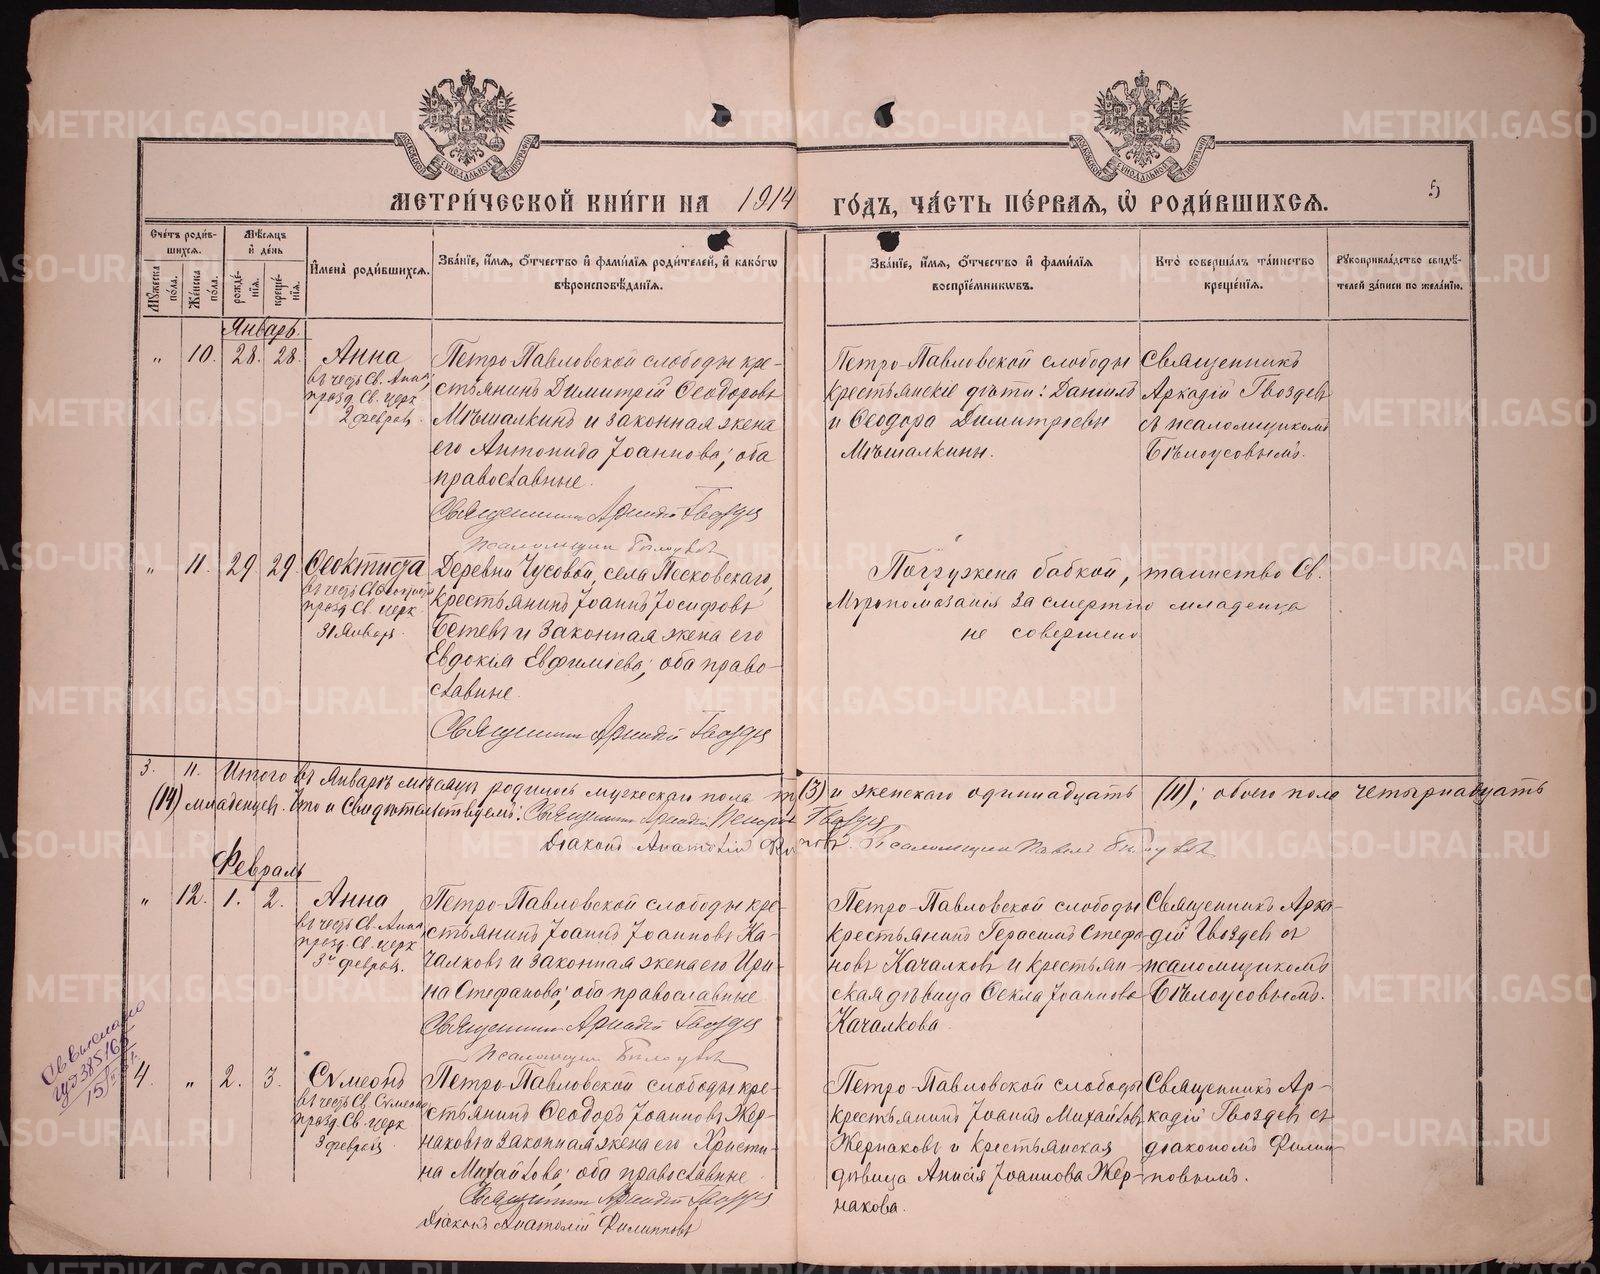 МЕТРИ́ЧЕСКОЙ КНИ́ГИ НА 1914 ГО́ДЪ, ЧА́СТЬ ПЕ́РВАЯ, Ѡ РОДИ́ВШИХСЯ.
5
Сче́тъ роди́вшихся.
Мѣ́сяцъ и́ де́нь
Мꙋ́жеска по́ла.
Же́нска по́ла.
рожде́нїя.
креще́нїя.
И҆мена̀ роди́вшихся.
Зва́нїе, и҆́мя, ѻ҆́тчество и҆ фами́лїя роди́телей, и҆ како́гѡ
вѣроисповѣ́данїя.
Зва́нїе, и҆́мя, ѻ҆́тчество и҆ фами́лїя
воспрїе́мникѡвъ.
Кто̀ соверша́лъ та́инство
креще́нїя.
Рꙋкоприкла́дство свидѣ́телей за́писи по жела́нїю.
Январь.
" 10. 28. 28.
Анна
въ честь Св. Анны,
празд. Св. церк
2 февраля.
Петро-Павловской слободы кре-
стьянинъ Димитрій Ѳеодоровъ
Мѣшалкинъ и законная жена
его Антонида Іоаннова; оба
православные.
Священникъ Аркадій Гвоздевъ
Псаломщикъ Бѣлоусовъ
Петро-Павловской слободы
крестьянскіе дѣти: Даніилъ
и Ѳеодора Димитріевы
Мѣшалкины.
Священникъ
Аркадій Гвоздевъ
съ псаломщикомъ
Бѣлоусовымъ.
" 11. 29 29.
Ѳеоктиста
празд. Св. церк
31 Января.
Деревни Чусовой, села Песковскаго,
крестьянинъ Іоаннъ Іосифовъ
и законная жена его
Евдокія Евфиміева; оба право-
славные.
Священникъ Аркадій Гвоздевъ
Погружена бабкой, таинство Св.
Мѵропомазанія за смертію младенца
не совершено
3. 11. Итого въ Январѣ мѣсяцѣ родилось мужескаго пола (3) и женскаго одиннадцать (11); обоего пола четырнадцать
(14) младенцев. Что и Свидѣтельствуемъ: Священникъ Аркадій Гвоздевъ
Діаконъ Анатолій Псаломщикъ Павелъ Бѣлоусовъ
Февраль
" 12. 1. 2.
Анна
въ честь Св. Анны,
празд. Св. церк
3й февраля.
Петро-Павловской слободы кре-
стьянинъ Іоаннъ Іоанновъ Ка-
чалковъ и законная жена его Ири-
на Стефанова; оба православные
Священникъ Аркадій Гвоздевъ
Псаломщикъ Бѣлоусовъ
Петро-Павловской слободы
крестьянинъ Герасимъ Стефа-
новъ Качалковъ и крестьян-
ская дѣвица Ѳекла Іоаннова
Качалкова.
Священникъ Арка-
дій Гвоздевъ съ
псаломщикомъ
Бѣлоусовымъ.
4. " 2. 3.
Сѵмеонъ
въ честь Св. Сѵмеона
празд. Св. церк
3 февраля
Петро-Павловской слободы кре-
стьянинъ Ѳеодоръ Іоанновъ Жер-
наковъ и законная жена его Христи-
на Михайлова; оба православные
Священникъ Аркадій Гвоздевъ
Діаконъ Анатолій Филипповъ
Петро-Павловской слободы
крестьянинъ Іоаннъ Михайловъ
Жернаковъ и крестьянская
дѣвица Анисія Іоаннова Жер-
накова.
Священникъ Ар-
кадій Гвоздевъ съ
діакономъ Филип-
повымъ.
METRIKI.GASO-URAL.RU